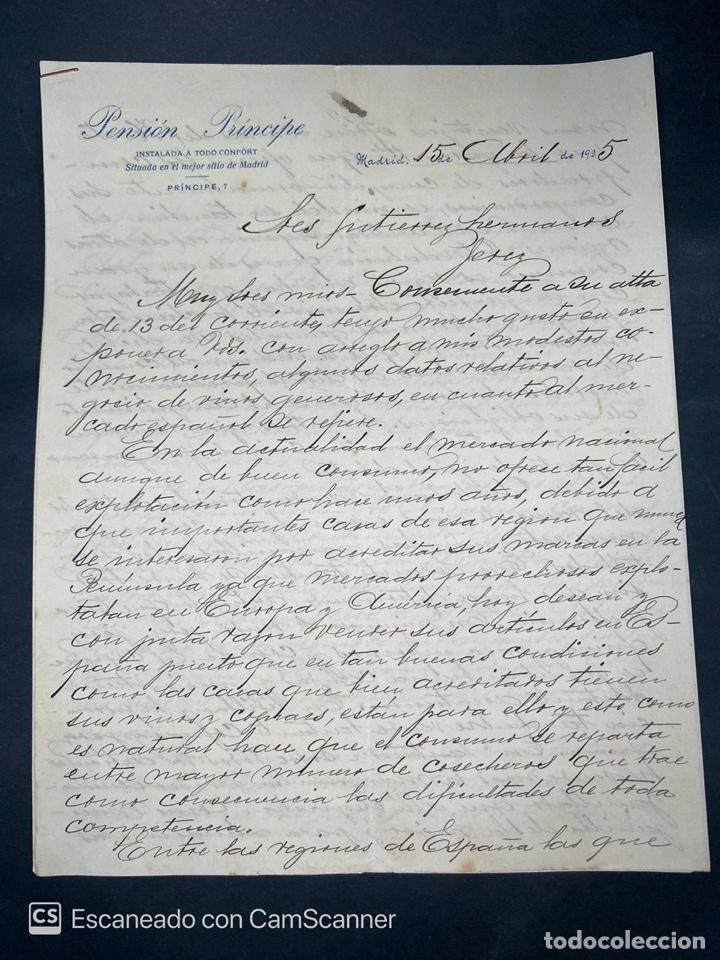 Pensión Príncipe
INSTALADA A TODO CONFORT
Situada en el mejor sitio de Madrid
PRÍNCIPE, 7
Madrid, 15 de Abril de 1935
Sres Gutierrez hermanos
Jerez
Muy Sres mios- Consecuente a su atta
de 13 del corriente, tengo mucho gusto en ex-
poner a Vds. con arreglo a mis modestos co-
nocimientos, algunos datos relativos al ne-
gocio de vinos generosos, en cuanto al mer-
cado español se refiere.
En la actualidad el mercado nacional
aunque de buen consumo, no ofrece tan facil
explotación como hace unos años, debido a
que importantes casas de esa region que nunca
se interesaron por acreditar sus marcas en la
Península ya que mercados provechosos explo-
taban en Europa y América, hoy desean y
con justa razon vender sus articulos en Es-
paña puesto que en tan buenas condiciones
como las casas que bien acreditados tienen
sus vinos y cognacs, están para ello y esto como
es natural hace que el consumo se reparta
entre mayor número de cosecheros que trae
como consecuencia las dificultades de toda
competencia.
Entre las regiones de España las que
CS Escaneado con CamScanner
todocoleccion